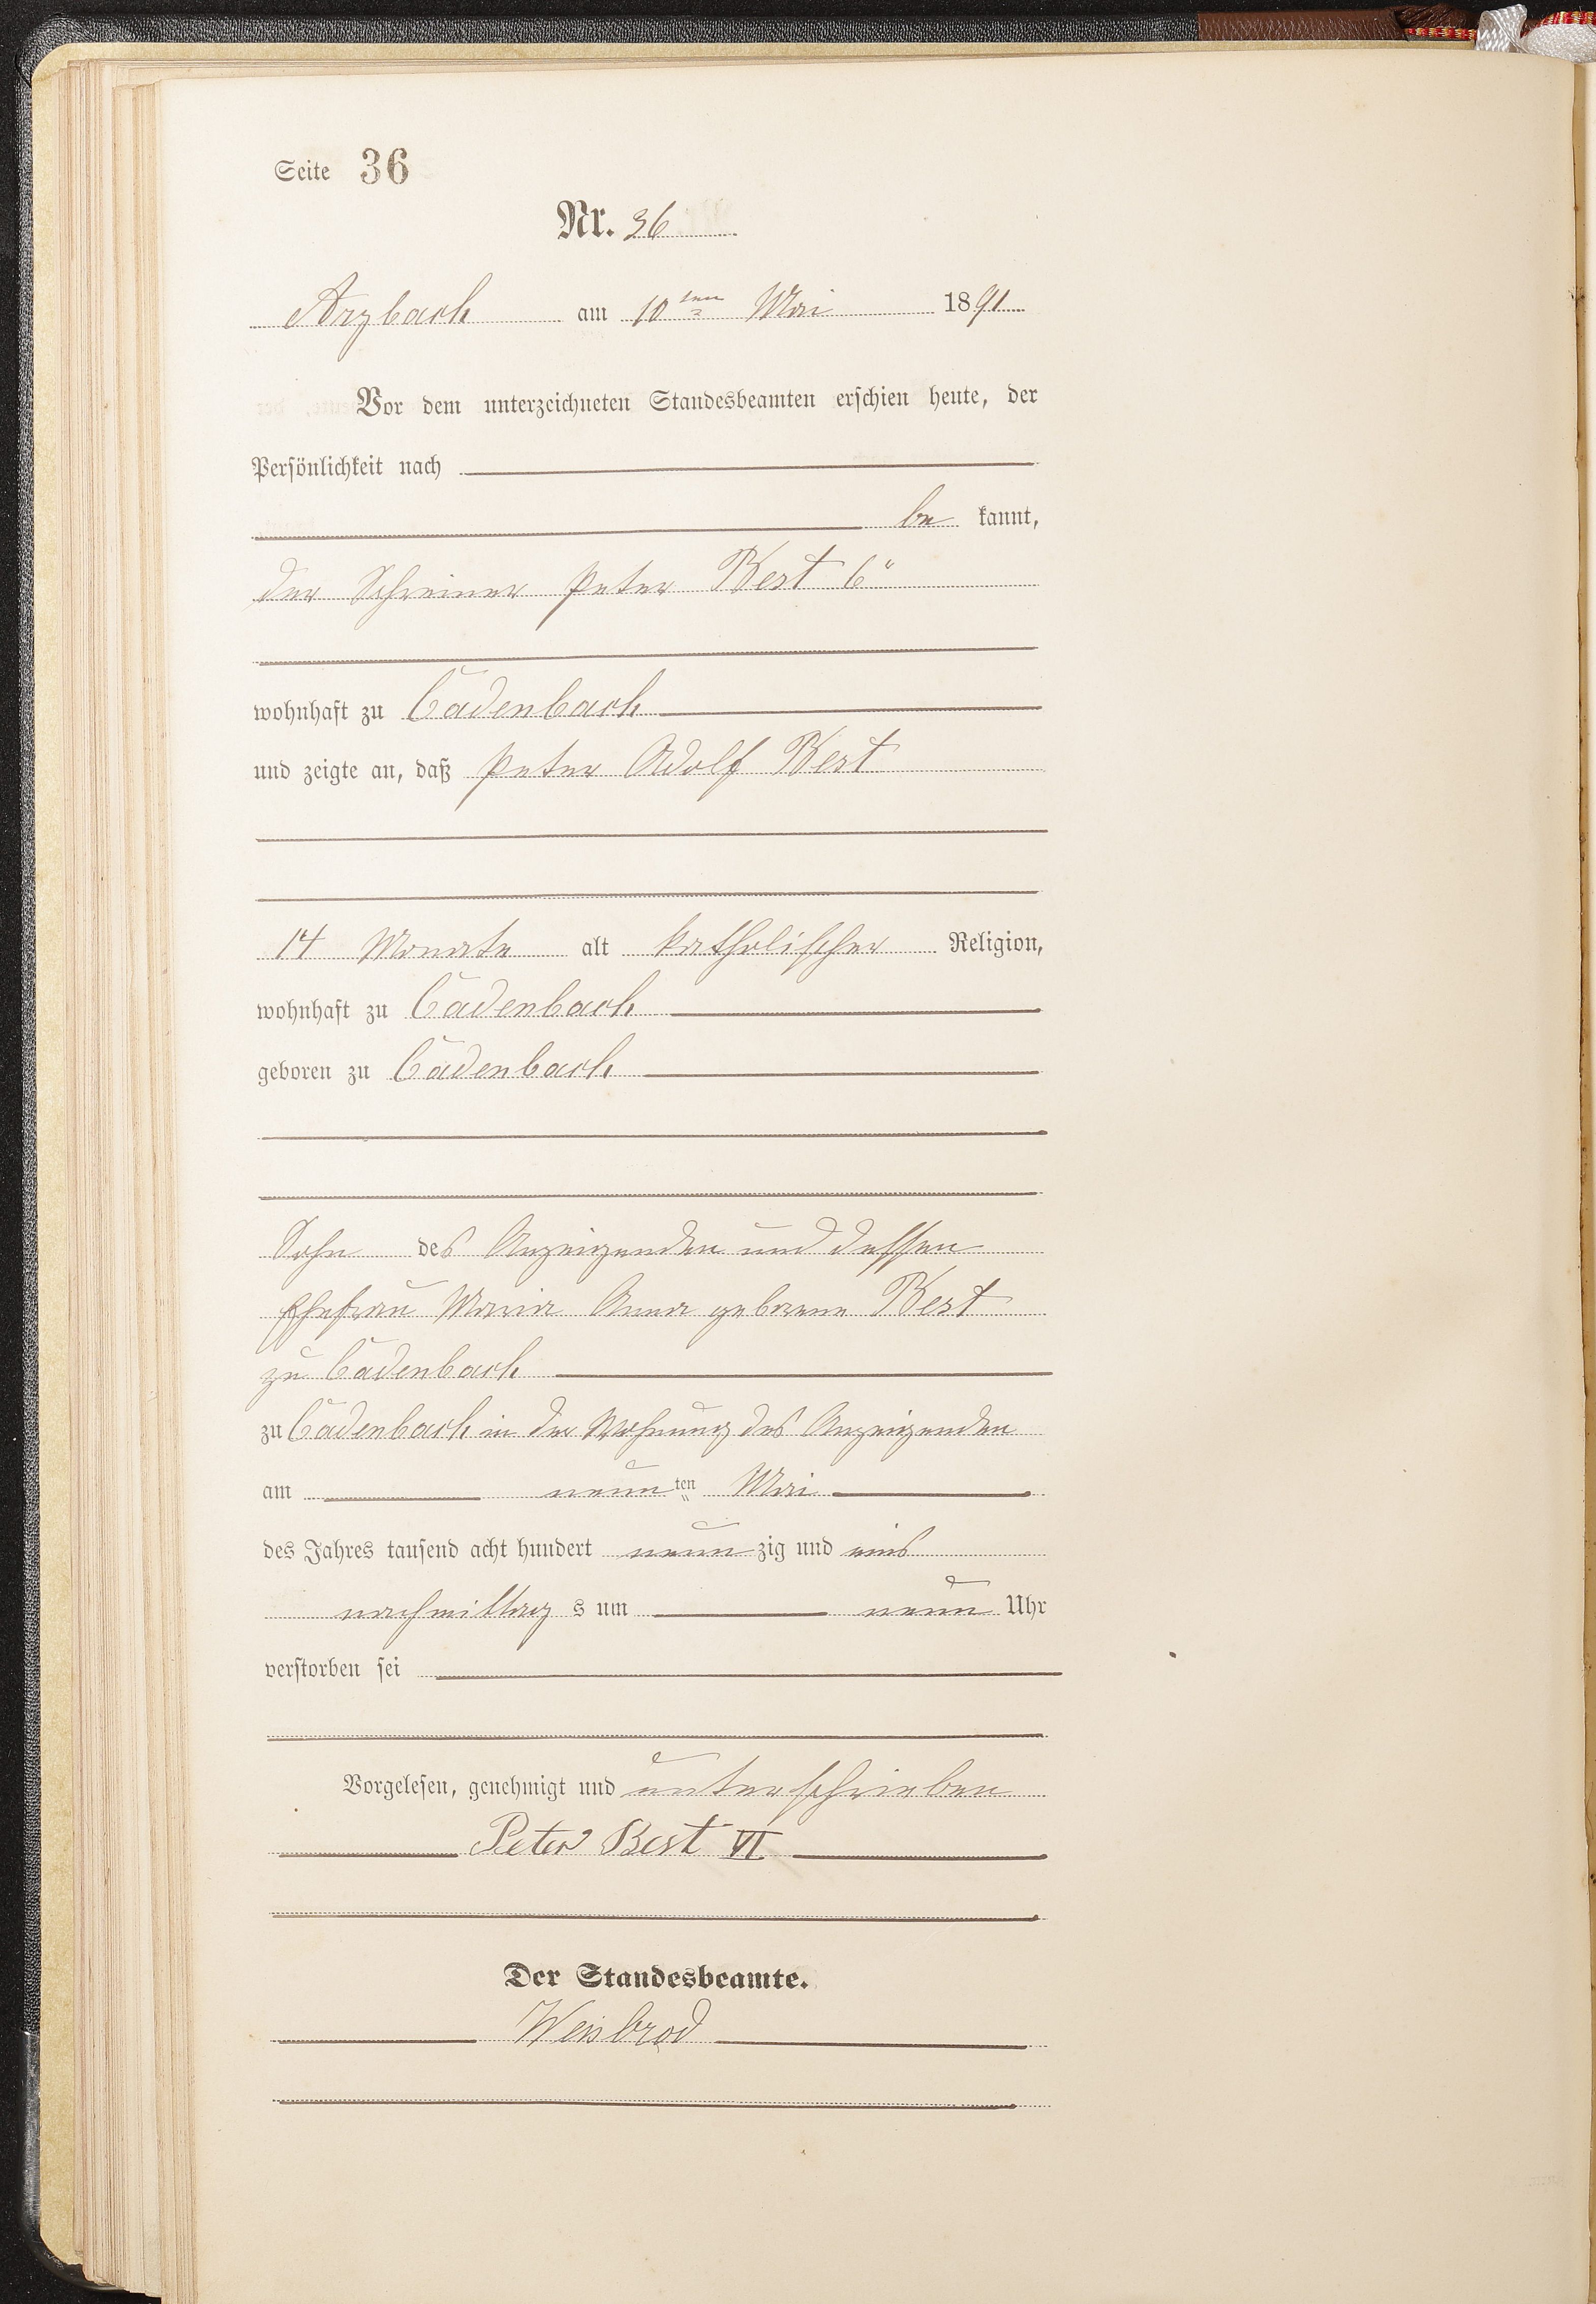 Seite 36
Nr. 36
Arzbach am 10ten Mai 1891
Vor dem unterzeichneten Standesbeamten erschien heute, der
Persönlichkeit nach
be kannt,
der Schreiner Peter Best 6"
wohnhaft zu Cadenbach
und zeigte an, daß Peter Adolf Best
14 Monate alt katholischer Religion,
wohnhaft zu Cadenbach
geboren zu Cadenbach
Sohn des Anzeigenden und dessen
Ehefrau Maria Anna geborene Best
zu Cadenbach
zu Cadenbach in der Wohnung des Anzeigenden
am neun ten Mai
des Jahres tausend acht hundert neun zig und eins
nachmittag s um neun Uhr
verstorben sei
Vorgelesen, genehmigt und unterschrieben
Peter Best VI
Der Standesbeamte.
Weisbrod